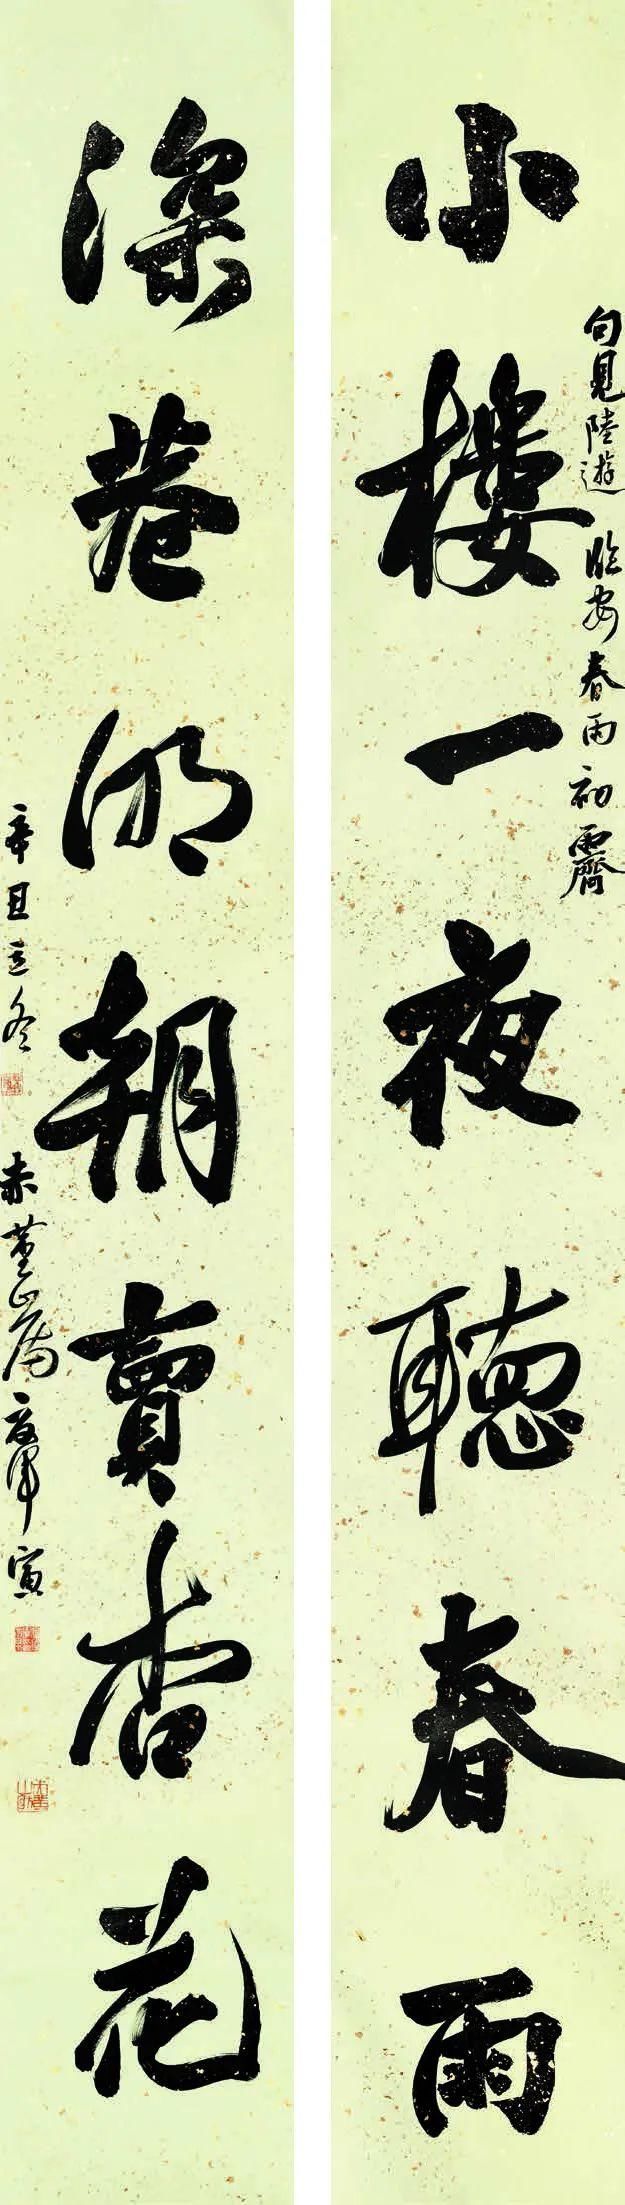 小樓一夜聽春雨
句見陸遊 臨安春雨初霽
深巷明朝賣杏花
辛丑立冬
赤堇山房
寅